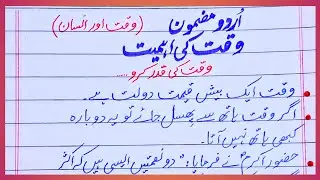 اُردو مضمون (وقت اور انسان)
وقت کی اہمیت
وقت کی قدر کرو.....
وقت ایک بیش قیمت دولت ہے۔
اگر وقت ہاتھ سے پھسل جائے تو یہ دوبارہ
کبھی ہاتھ نہیں آتا۔
حضور اکرمؐ نے فرمایا: "دو نعمتیں ایسی ہیں کہ اکثر